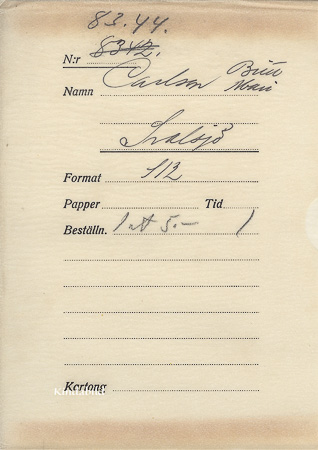 83.44.
N:r 8342.
Namn Carlson Britt
Mari
Svalsjö
Format 1/2
Papper Tid
Beställn. 1 st 5:- /
Kartong